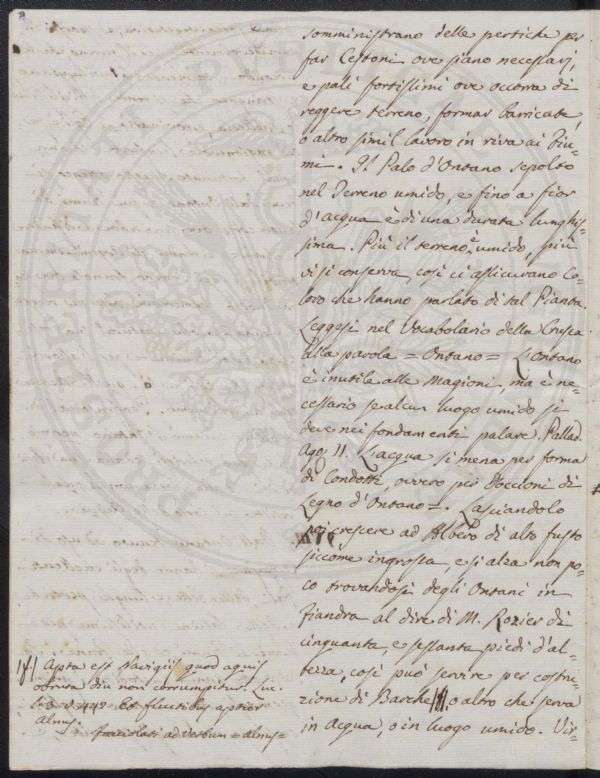 somministrano delle pertiche per
far Cestoni ove siano necessarj,
e pali fortissimi ove occorra di
reggere terreno, formar barricate,
o altro simil lavoro in riva ai Fiu=
mi. Il Palo d'Ontano sepolto
nel Terreno umido, e fino a fior
d'acqua è di una durata lunghis=
sima. Più il terreno è umido, più
vi si conserva, così ci assicurano Co=
loro che hanno parlato di tal Pianta.
Leggesi nel Vocabolario della Crusca
alla parola = Ontano = L'Ontano
è inutile alle magioni, ma è ne=
cessario se alcun luogo umido si
deve nei fondamenti palare. Pallad.
Ago. 11. L'acqua si mena per forma
di Condotti, ovvero per Doccioni di
Legno d'Ontano =. Lasciandolo
poi crescere ad Albero di alto fusto
siccome ingrossa, e si alza non po=
co trovandosi degli Ontani in
Fiandra al dire di M. Rozier di
cinquanta, e sessanta piedi d'al=
tezza, così può servire per costru=
zione di Barche, o altro che serva
in acqua, o in luogo umido. Vir=
Apta est Navigiis quod aquis
obruta diu non corrumpitur. Luc.
li. 3. v. 442 Et fluctibus aptior
alnus.
Facciolati ad verbum = alnus =